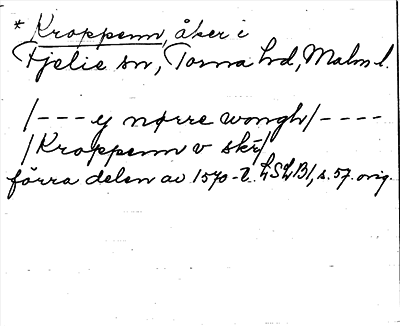 * Kroppenn, åker i
Fjelie sn, Torna hd, Malm l.
/--- ey nørre wongh/----
/Kroppenn v skr/
förra delen av 1570-t. LSLB1, s. 57. orig.